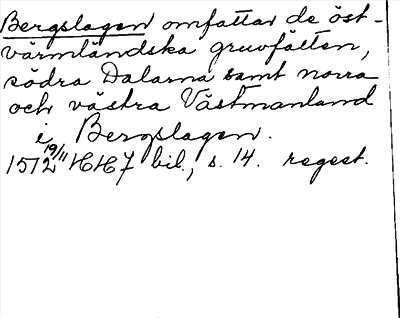 Bergslagen omfattar de öst-
värmländska gruvfälten,
södra Dalarna samt norra
och västra Västmanland
i Bergslagen.
1572 19/11 HH7 bil., s. 14. regest.